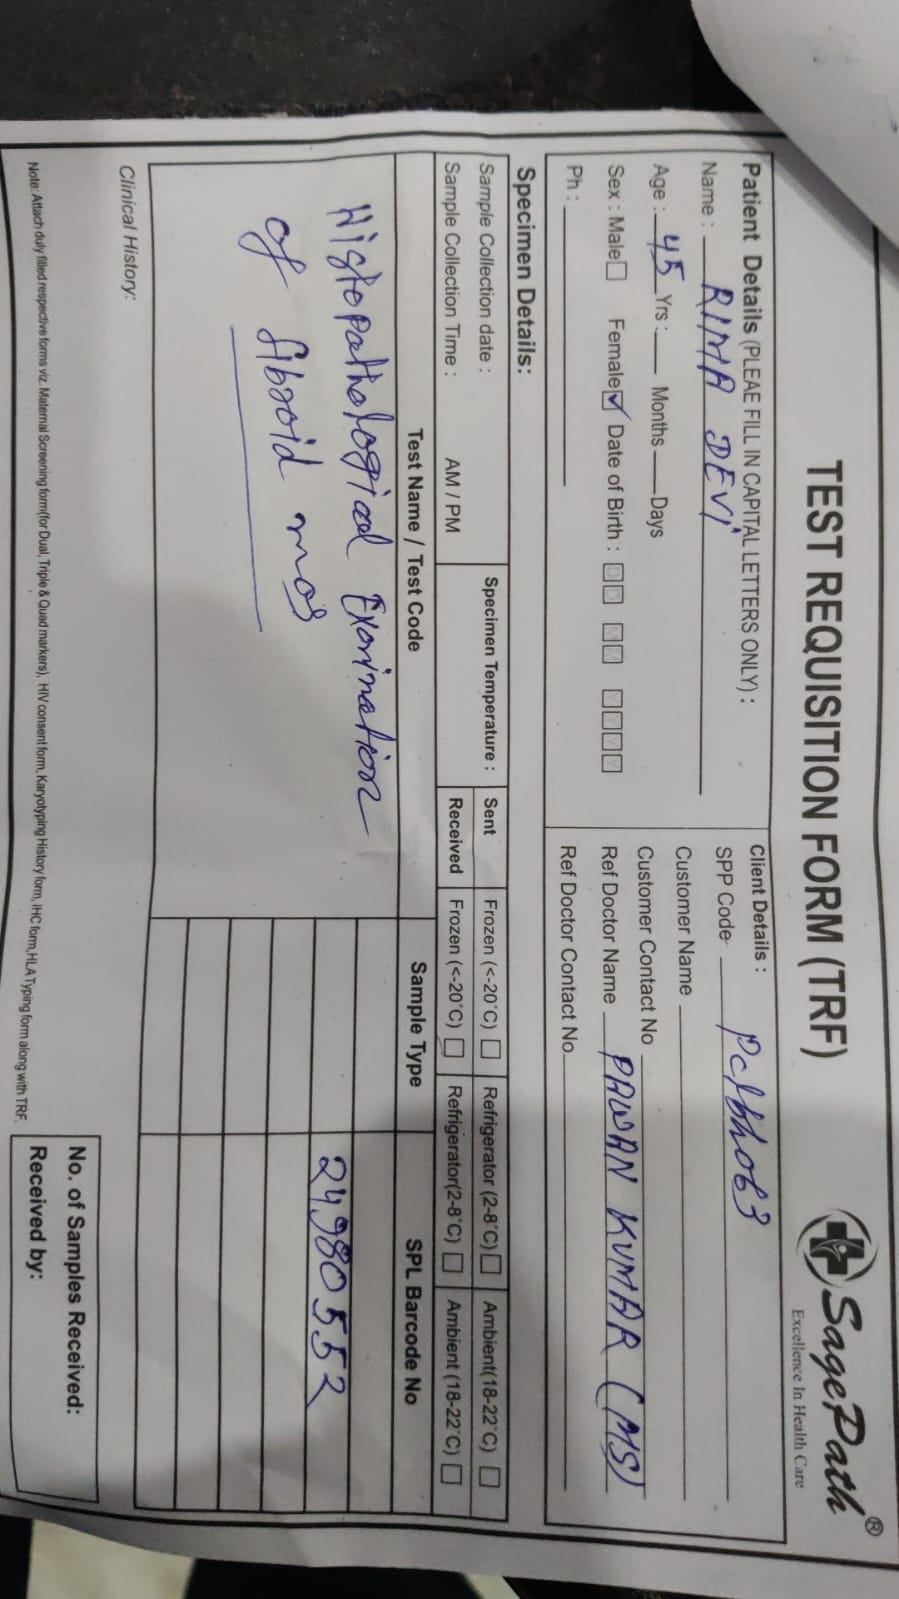 TEST REQUISITION FORM (TRF)
SagePath®
Excellence In Health Care
Patient Details (PLEAE FILL IN CAPITAL LETTERS ONLY) :
Name : RIMA DEVI
Age : 45 Yrs : Months Days
Sex : Male Female ✓ Date of Birth : D D M M Y Y Y Y
Ph :
Client Details :
SPP Code
Customer Name
Customer Contact No
Ref Doctor Name PAWAN KUMAR (MS)
Ref Doctor Contact No
Specimen Details:
Sample Collection date :
Sample Collection Time : AM / PM
Specimen Temperature :
Sent Frozen (<-20°C) Refrigerator (2-8°C) Ambient(18-22°C)
Received Frozen (<-20°C) Refrigerator(2-8°C) Ambient (18-22°C)
Test Name / Test Code Sample Type SPL Barcode No
Histopathological Exminetion
of fibroid
24980552
Clinical History:
Note: Attach duly filled respective forms viz. Maternal Screening form(for Dual, Triple & Quad markers), HIV consent form, Karyotyping History form, IHC form,HLA Typing form along with TRF.
No. of Samples Received:
Received by: